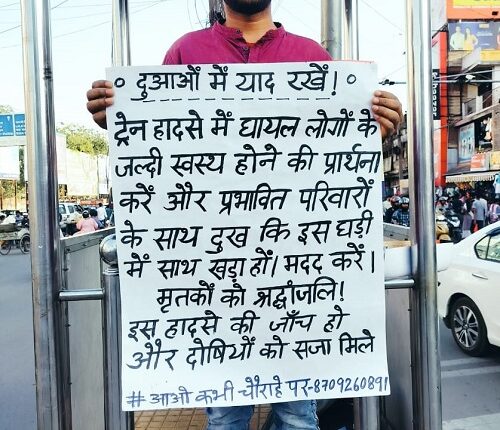 ० दुआओं में याद रखें! ०
ट्रेन हादसे में घायल लोगों के
जल्दी स्वस्थ होने की प्रार्थना
करें और प्रभावित परिवारों
के साथ दुख कि इस घड़ी
में साथ खड़ा हों। मदद करें।
मृतकों को श्रद्धांजलि!
इस हादसे की जाँच हो
और दोषियों को सजा मिले
#आओ कभी चौराहे पर-8709260891